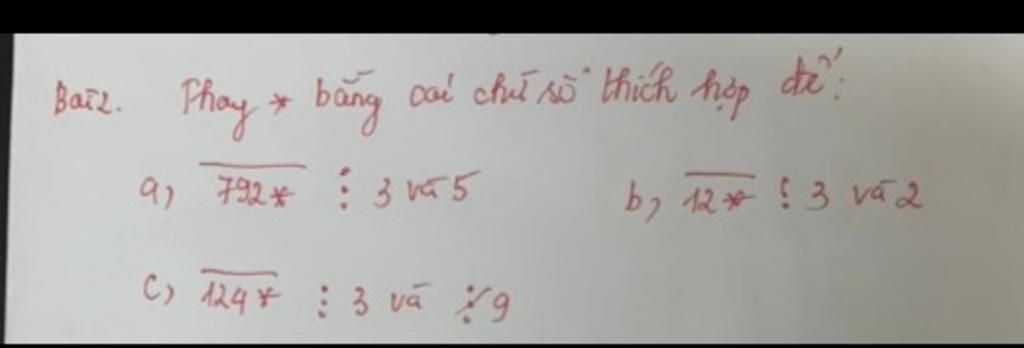 Bài 2. Thay * bằng các chữ số thích hợp để:
a) 792* ⋮ 3 và 5 b) 12* ⋮ 3 và 2
c) 124* ⋮ 3 và ⋮̸ 9